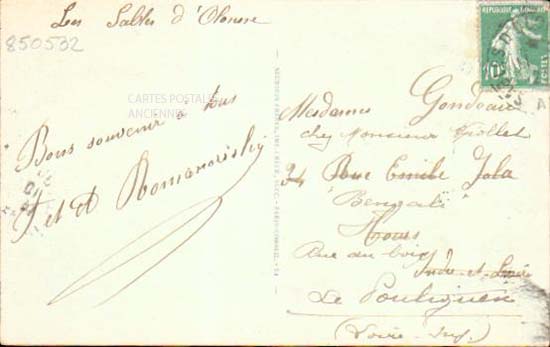 Les Sables d'Olonne
850532
CARTES POSTALES
ANCIENNES
Bons souvenir à tous
J et A Romanovisky
REPUBLIQUE FRANCAISE
10
POSTES
Madame Gondeau
chez Monsieur Viollet
34 Rue Emile Zola
"Bengali"
Tours
Rue du bois
Indre et Loire
Le Pouliguen
(Loire Inf.)